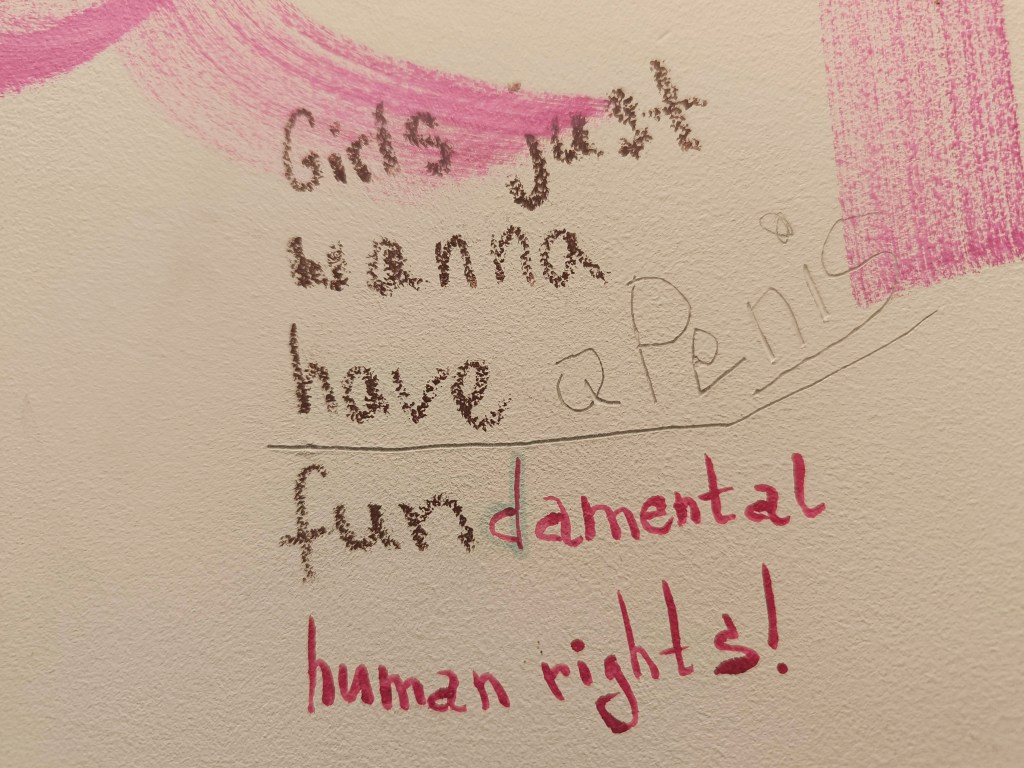 Girls just
wanna
have a Penis
fundamental
human rights!